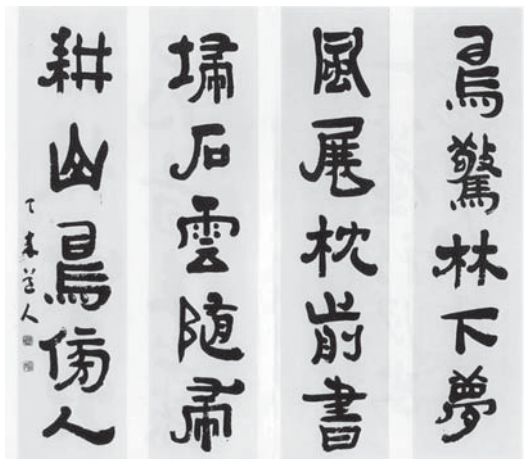 鳥驚林下夢
風展枕前書
埽石雲随帚
耕山鳥傍人
道人